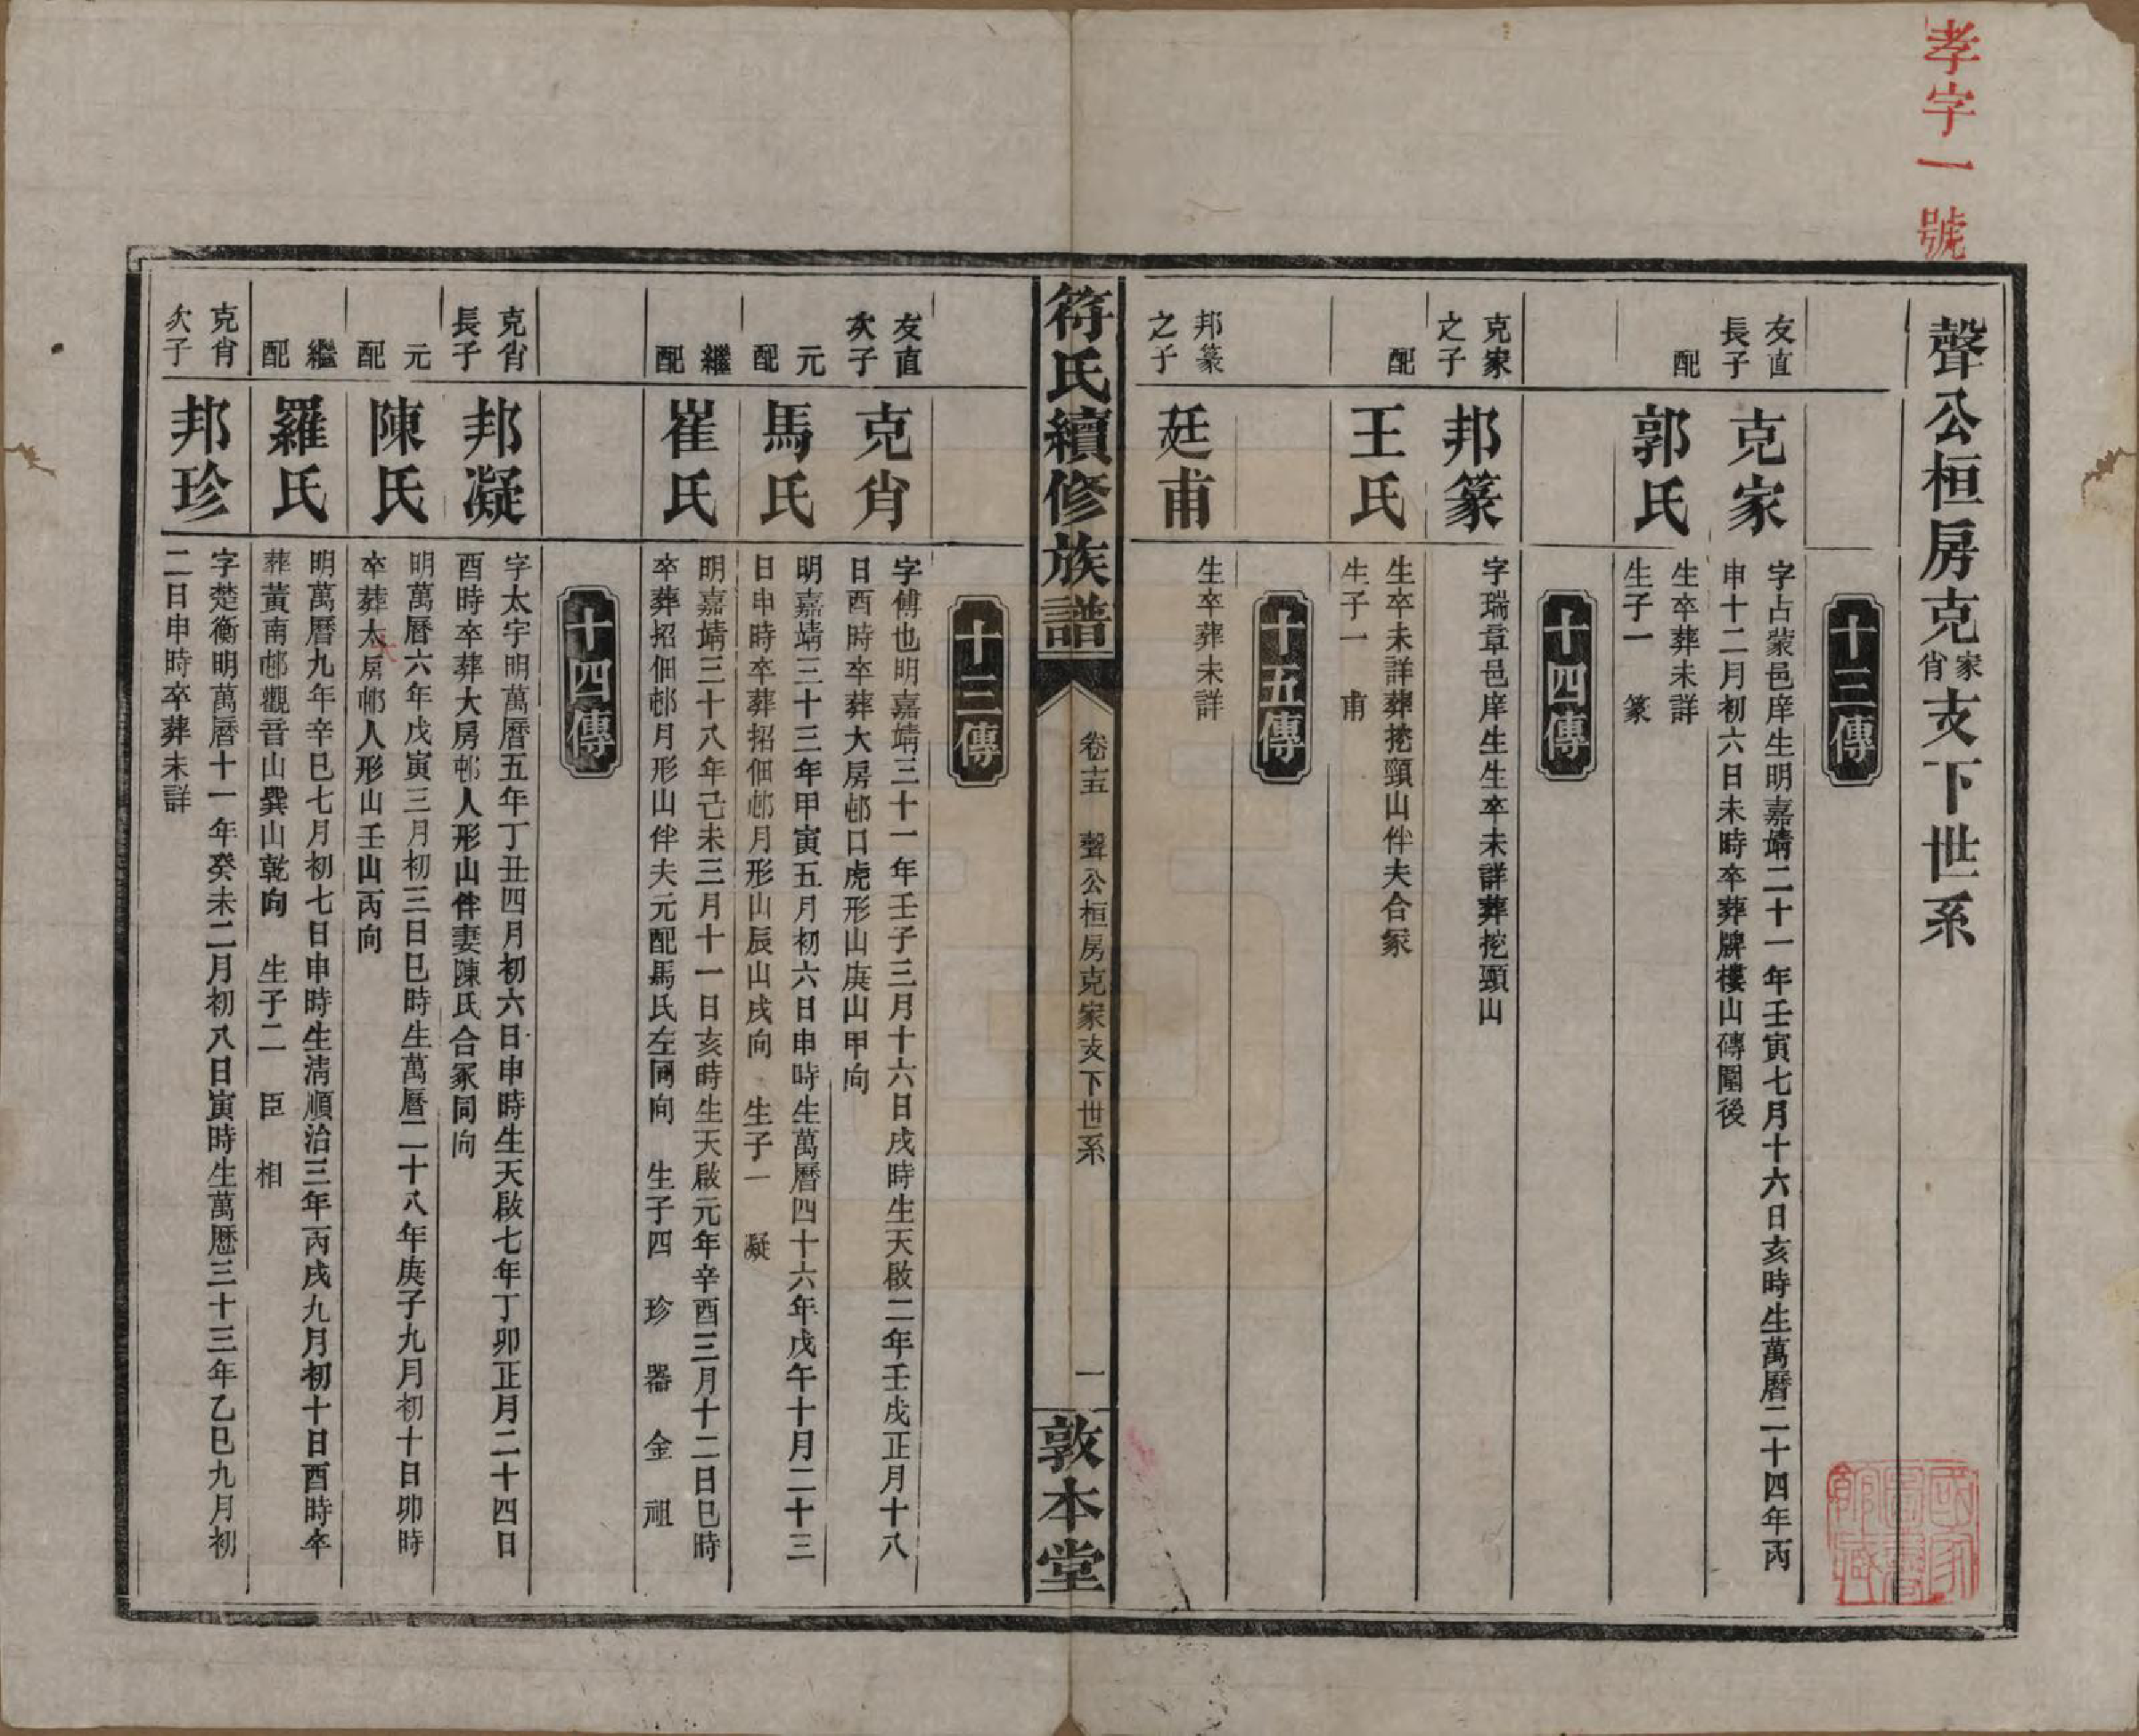 孝字一號
聲公桓房克家肖支下世系
十三傳
友直長子
克家
字占蒙邑庠生明嘉靖二十一年壬寅七月十六日亥時生萬曆二十四年丙
申十二月初六日未時卒葬牌樓山磚圍後
配
郭氏
生卒葬未詳
生子一　篆
十四傳
克家之子
邦篆
字瑞章邑庠生生卒未詳葬挖頸山
配
王氏
生卒未詳葬挖頸山伴夫合冢
生子一　甫
十五傳
邦篆之子
廷甫
生卒葬未詳
符氏續修族譜
卷十五　聲公桓房克家支下世系
一
敦本堂
十三傳
友直次子
克肖
字傅也明嘉靖三十一年壬子三月十六日戌時生天啟二年壬戌正月十八
日酉時卒葬大房邨口虎形山庚山甲向
元配
馬氏
明嘉靖三十三年甲寅五月初六日申時生萬曆四十六年戊午十月二十三
日申時卒葬招佃邨月形山辰山戌向　生子一　凝
繼配
崔氏
明嘉靖三十八年己未三月十一日亥時生天啟元年辛酉三月十二日巳時
卒葬招佃邨月形山伴夫元配馬氏左同向　生子四　珍　器　金　祖
十四傳
克肖長子
邦凝
字太宇明萬曆五年丁丑四月初六日申時生天啟七年丁卯正月二十四日
酉時卒葬大房邨人形山伴妻陳氏合冢同向
元配
陳氏
明萬曆六年戊寅三月初三日巳時生萬曆二十八年庚子九月初十日卯時
卒葬大房邨人形山壬山丙向
繼配
羅氏
明萬曆九年辛巳七月初七日申時生清順治三年丙戌九月初十日酉時卒
葬黃南邨觀音山巽山乾向　生子二　臣　相
克肖次子
邦珍
字楚衡明萬曆十一年癸未二月初八日寅時生萬歷三十三年乙巳九月初
二日申時卒葬未詳